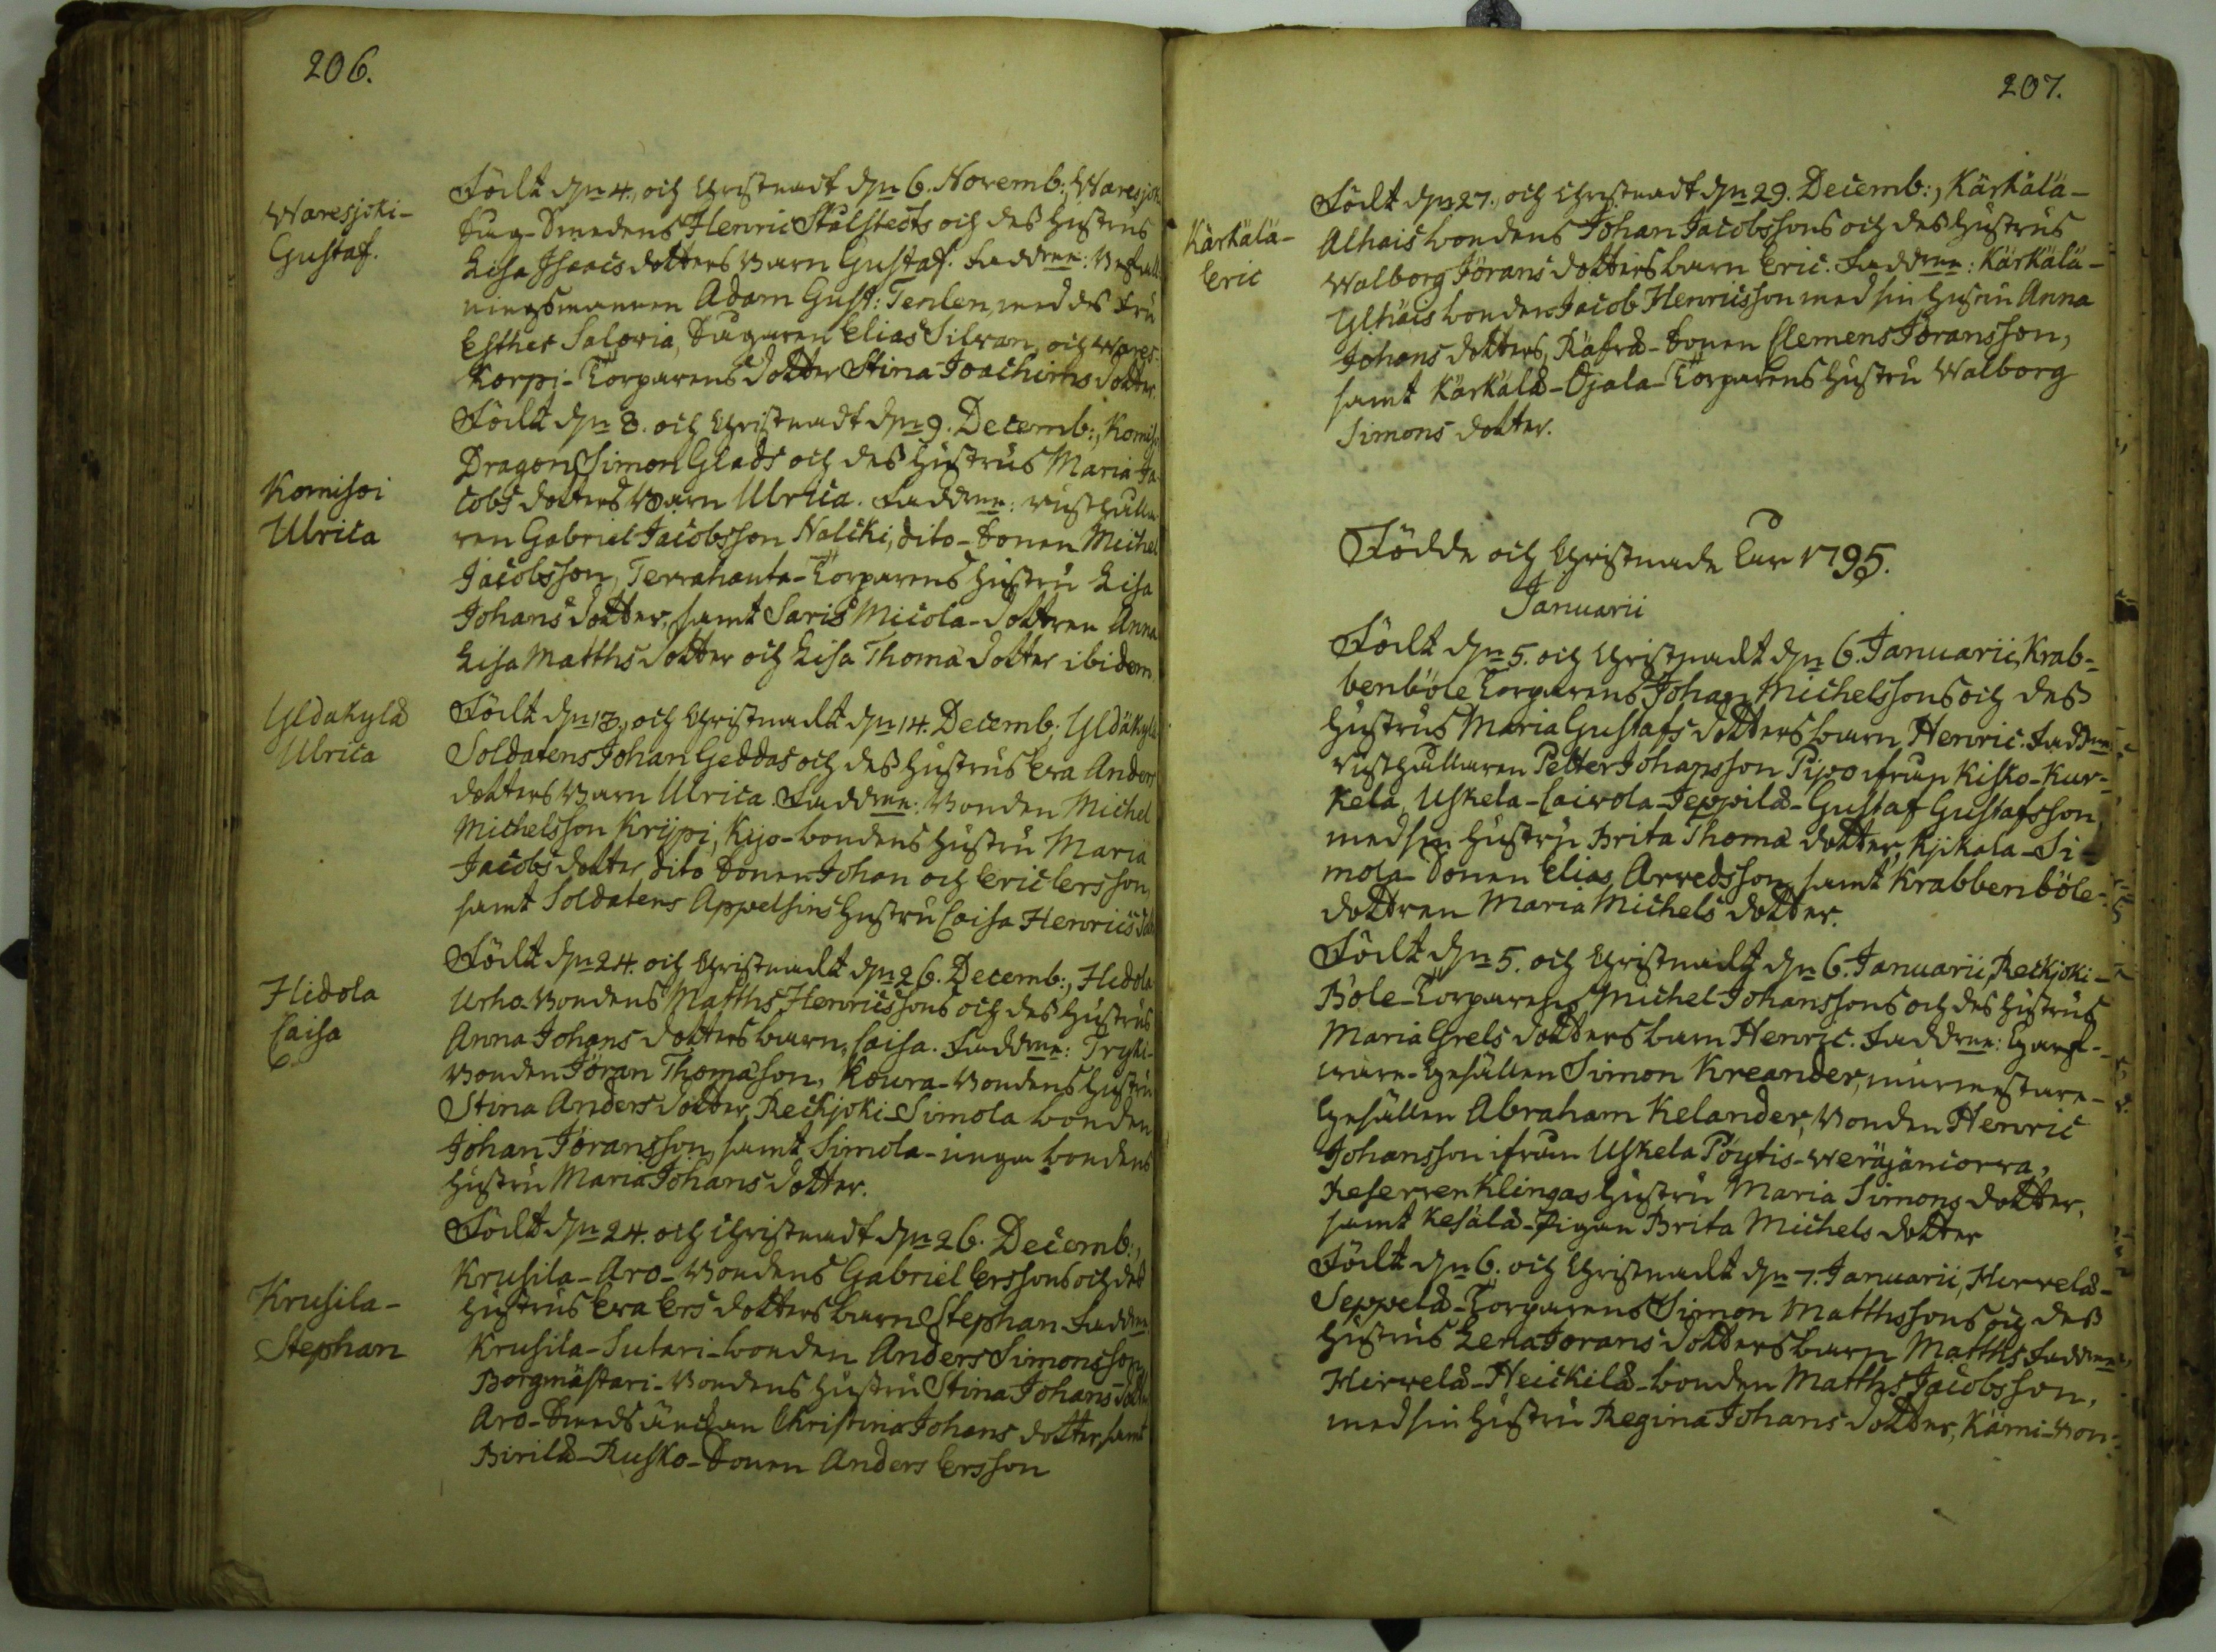 206.
Waresjoki-
Gustaf.
Födt dn 4., och Christnadt dn 6. Novemb:, Waresjoki
Såg-Smedens Henric Stålstedts och des hustrus
Lisa Isaacs dotters Barn Gustaf. Faddrar: Befall
ningsmannen Adam Gust: Tenlen, med des Fru
Esther Saloria, Sågaren Elias Silvan, och Wares-
Korpi-Torparens dotter Stina Joachims dotter.
Komisoi
Ulrica
Födt dn 8. och Christnadt dn 9. Decemb:, Komiso
Dragon Simon Glads och des hustrus Maria Ja-
cobs dotters Barn Ulrica. Faddrar: rusthålla-
ren Gabriel Jacobsson Nalcki, dito-Sonen Michel
Jacobsson, Terrahauta-Torparens hustru Lisa
Johans dotter, samt Saris Micola-dottren Anna
Lisa Matths dotter och Lisa Thomæ dotter ibidem.
Yldäkylä
Ulrica
Födt dn 13., och Christnadt dn 14. Decemb: Yldäkylä
Soldatens Johan Geddas och des hustrus Eva Anders
dotters Barn Ulrica. Faddrar: Bonden Michel
Michelsson Krijpi, Kijo-bondens hustru Maria
Jacobs dotter, dito Sonen Johan och Eric Ersson,
samt Soldatens Appelsins hustru Caisa Henrics dott
Hidola
Caisa
Födt dn 24. och Christnadt dn 26. Decemb:, Hidola
Urho-Bondens Matths Henricssons och des hustrus
Anna Johans dotters barn, Caisa. Faddrar: Tryki-
Bonden Jöran Thomæson, Koura-Bondens hustru
Stina Anders dotter, Reckjoki-Simola bonden
Johan Jöransson, samt Simola-unga bondens
hustru Maria Johans dotter.
Krusila-
Stephan
Födt dn 24. och Christnadt dn 26. Decemb:,
Krusila-Aro-Bondens Gabriel Erssons och des
hustrus Eva Ers dotters barn Stephan. Faddrar:
Krusila-Sutari-bonden Anders Simonsson,
Borgmästari-Bondens hustru Stina Johans-dott
Aro-Smeds änckan Christina Johans dotter samt
Birilä-Rusko-Sonen Anders Ersson
207.
Kärkälä-
Eric
Födt dn 27., och Christnadt dn 29. Decemb:, Kärkälä-
Alhais bondens Johan Jacobssons och des hustrus
Walborg Jörans dotters barn Eric. Faddrar: Kärkälä-
Ylhäis bonden Jacob Henricsson med sin hustru Anna
Johans dotters, Räfvä-Sonen Clemens Jöransson,
samt Kärkälä-Ojala-Torparens hustru Walborg
Simons dotter.
Födde och Christnade Åhr 1795.
Januarii
Födt dn 5. och Christnadt dn 6. Januarii, Krab-
benböle Torparens Johan Michelssons och des
hustrus Maria Gustafs dotters barn Henric. Faddrar:
rusthållaren Petter Johansson Pijoo ifrån Kisko-Kur-
kela, Uskela-Caivola-Jeppilä-Gustaf Gustafsson
med sin hustru Brita Thomæ dotter, Kjikala-Si-
mola-Sonen Elias Arvedsson, samt Krabbenböle-
dottren Maria Michels dotter.
Födt dn 5. och Christnadt dn 6. Januarii, Reckjoki-
Böle-Torparens Michel Johanssons och des hustrus
Maria Grels dotters barn Henric. Faddrar: Garf-
vare-Gesällen Simon Kreander, murmestare-
Gesällen Abraham Kelander, Bonden Henric
Johansson ifrån Uskela Pöytis-weräjäncorva,
Reserven Klingas hustru Maria Simons dotter,
samt Kesälä-Pigan Brita Michels dotter
Födt dn 6. och Christnadt dn 7. Januarii, Hirvelä-
Seppelä-Torparens Simon Matthssons och des
hustrus Lena Jörans dotters barn Matths. Faddrar:
Hirvelä-Heickilä-bonden Matths Jacobsson,
med sin hustru Regina Johans dotter, Kärni-Bon-